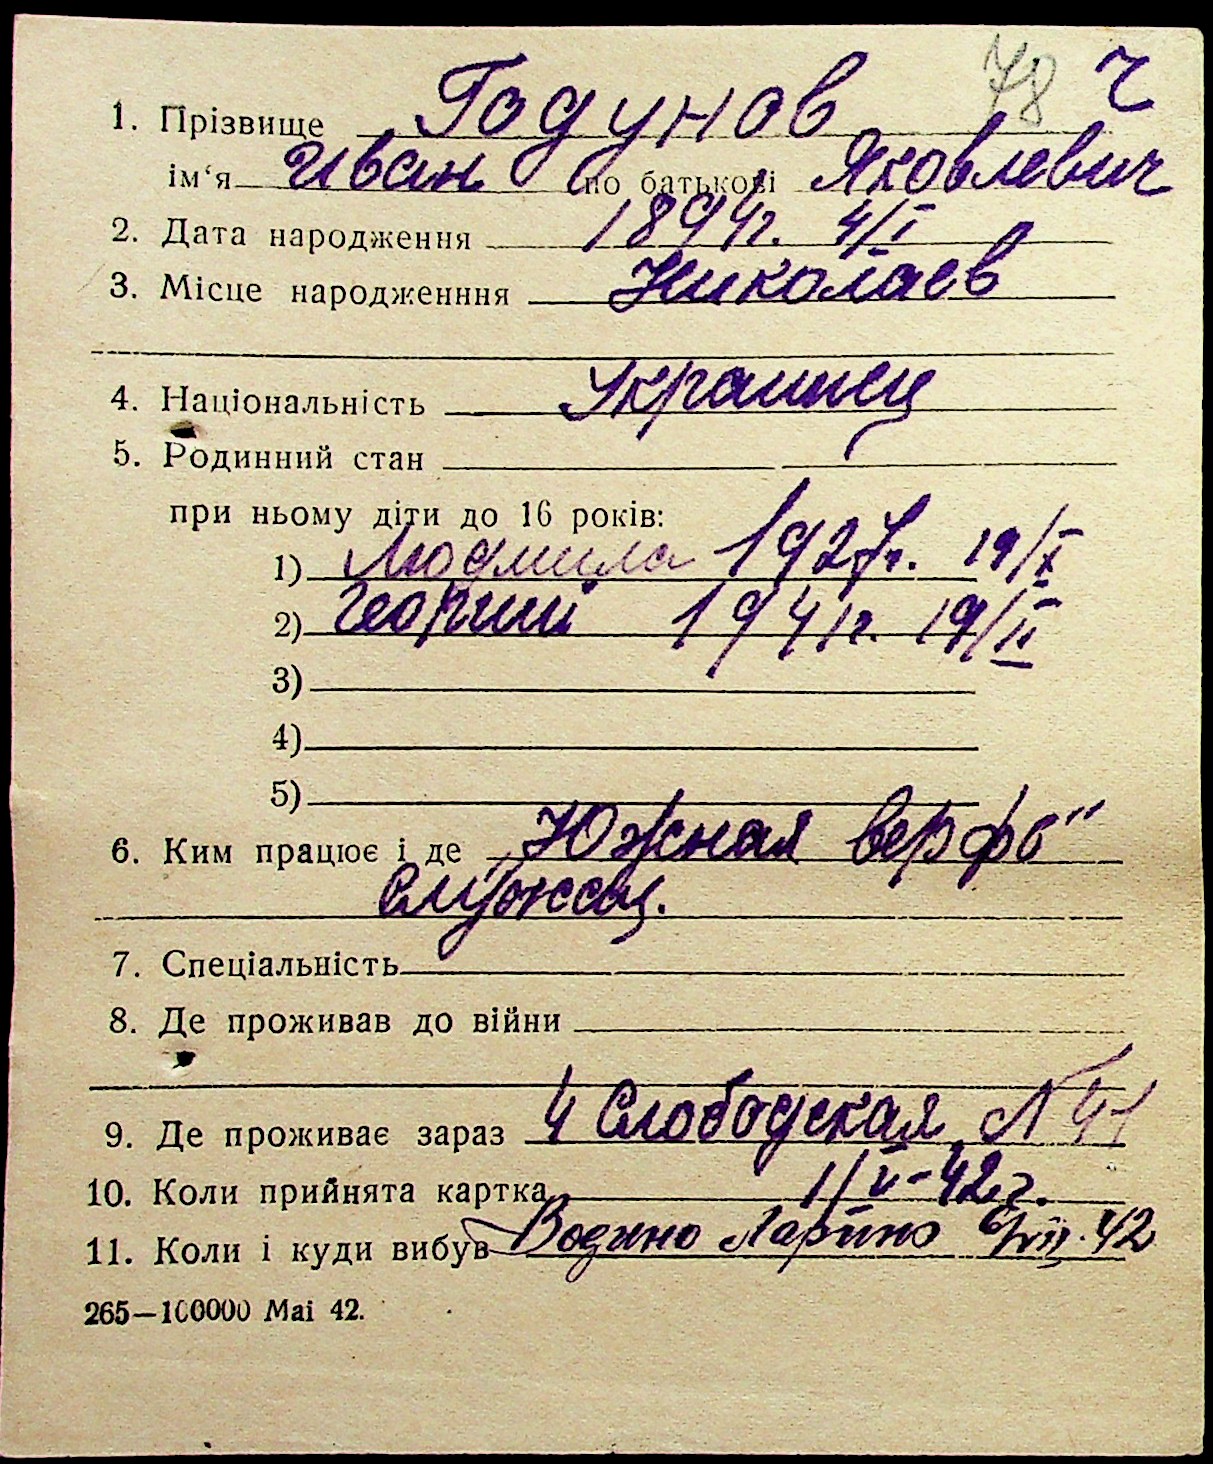 78 ч
1. Прізвище Годунов
ім‘я Иван по батькові Яковлевич
2. Дата народження 1894г. 4/I
3. Місце народженння Николаев
4. Національність Украинец
5. Родинний стан
при ньому діти до 16 років:
1) Людмила 1927г. 19/X
2) Георгий 1941г. 19/II
3)
4)
5)
6. Ким працює і де „Южная верфь“
Служащ.
7. Спеціальність
8. Де проживав до війни
9. Де проживає зараз 4 Слободская N 41
10. Коли прийнята картка 1/V-42г.
11. Коли і куди вибув 6/VII.42
265—100000 Mai 42.